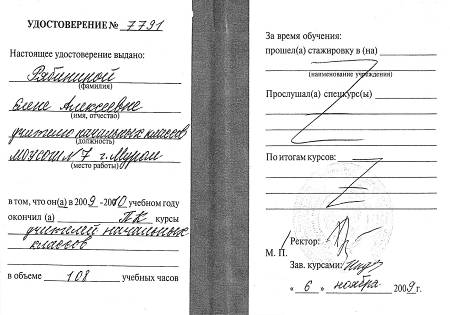 УДОСТОВЕРЕНИЕ № 7791
Настоящее удостоверение выдано:
Рябининой
(фамилия)
Елене Алексеевне
(имя, отчество)
учителю начальных классов
(должность)
МОУСОШ №7 г. Муром
(место работы)
в том, что он(а) в 2009 -2010 учебном году
окончил (а) ПК курсы
учителей начальных
классов
в объеме 108 учебных часов
За время обучения:
прошел(а) стажировку в (на)
(наименование учреждения)
Прослушал(а) спецкурс(ы)
По итогам курсов:
Ректор:
М. П.
Зав. курсами:
« 6 » ноября 2009 г.